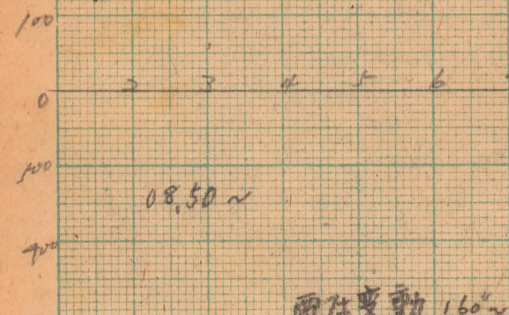 100
2 3 4 5 6
0
500
08.50 ~
400
変動 160"~